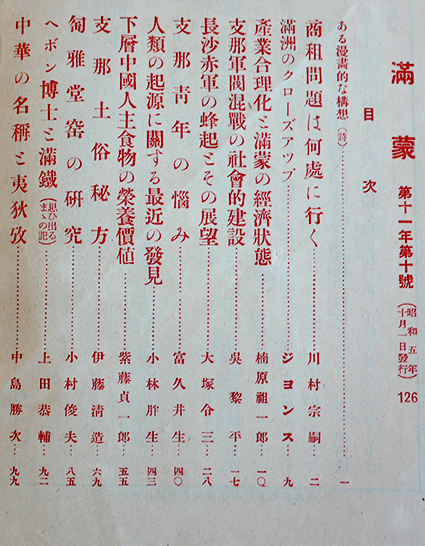 滿蒙 第十一年第十號 (昭和五年十月一日發行) 126
目次
ある漫畫的な構想(詩)…………一
商租問題は何處に行く…………川村宗嗣…二
滿洲のクローズアツプ…………ジヨンス…九
產業合理化と滿蒙の經濟狀態…………楠原祖一郎…一〇
支那軍閥混戰の社會的建設…………吳黎平…一七
長沙赤軍の蜂起とその展望…………大塚令三…二八
支那靑年の惱み…………富久井生…四〇
人類の起源に關する最近の發見…………小林胖生…四三
下層中國人主食物の榮養價値…………紫藤貞一郎…五五
支那土俗秘方…………伊藤淸造…六九
匋雅堂窑の硏究…………小村俊夫…八五
ヘボン博士と滿鐵(思ひ出るまゝの記)…………上田恭輔…九二
中華の名稱と夷狄攷…………中島勝次…九九